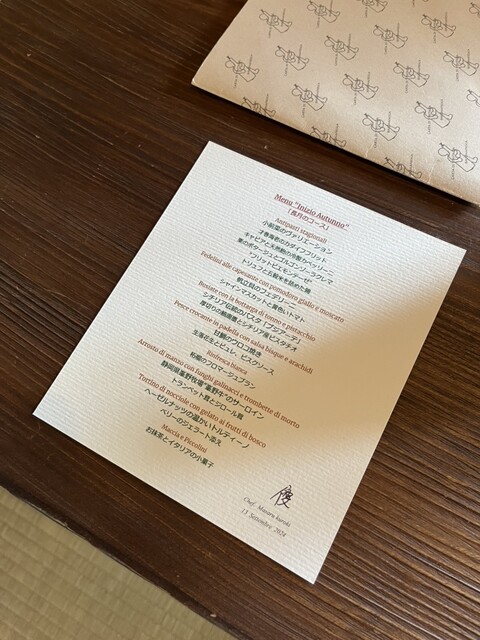 Menu "Inizio Autunno"
「長月のコース」
Antipasti stagionali
小前菜のヴァリエーション
子巻海老のカダイフフリット
キャビアと天然鮪の冷製カペッリーニ
栗のポタージュとゴルゴンゾーラクレマ
"フリットピエモンテーゼ"
トリュフと五穀米を詰めた鶉
Fedelini alle capesante con pomodoro giallo e moscato
帆立貝のフェデリーニ
シャインマスカットと黄色いトマト
Busiate con la bottarga di tonno e pistacchio
シチリア伝統のパスタ「ブジアーテ」
厚切りの鮪唐墨とシチリア産ピスタチオ
Pesce croccante in padella con salsa bisque e arachidi
甘鯛のウロコ焼き
生落花生とピュレ、ビスクソース
Rinfresca bianca
柘榴のフロマージュブラン
Arrosto di manzo con funghi galinacci e trombette di morto
静岡県峯野牧場"峯野牛"のサーロイン
トランペット茸とジロール茸
Tortino di nocciole con gelato ai frutti di bosco
ヘーゼルナッツの温かいトルティーノ
ベリーのジェラート添え
Maccia e Piccolini
お抹茶とイタリアの小菓子
俊
Chef Masaru kuroki
11 Settembre 2024